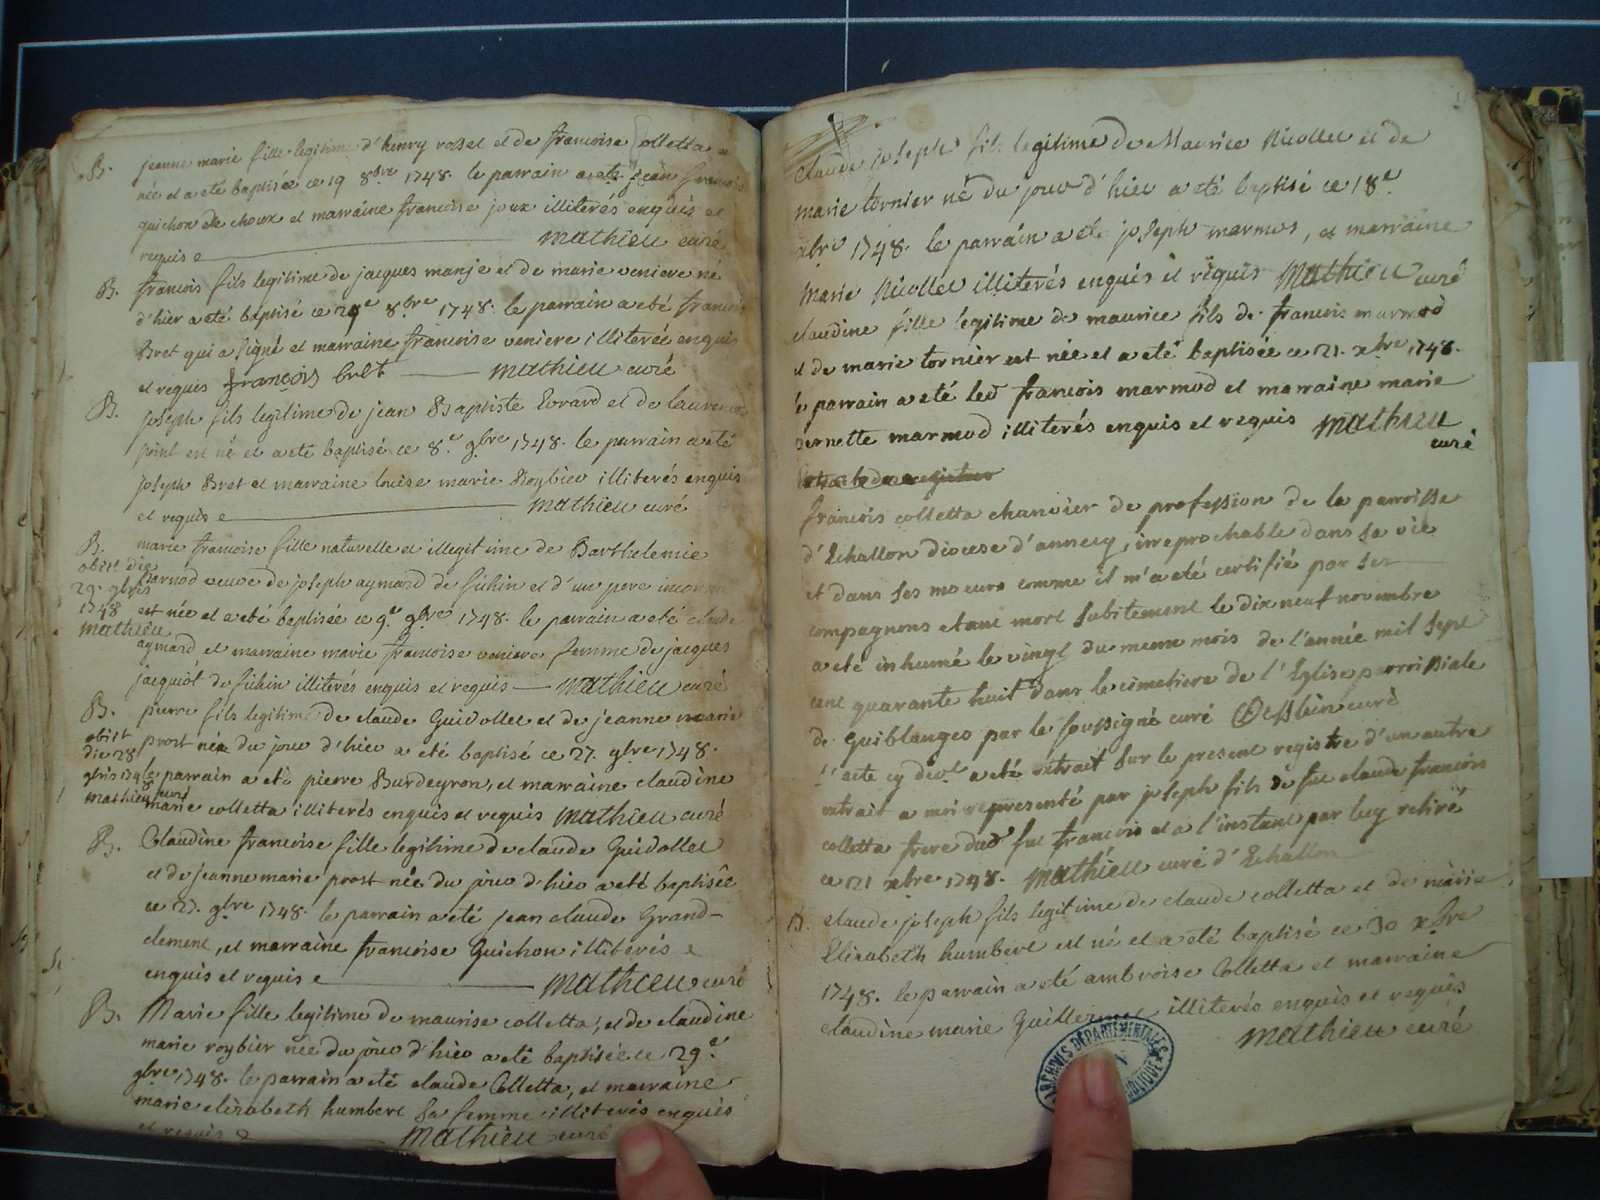 B. jeanne marie fille legitime d'henry rosset et de francoise Colletta
née et a eté baptisée ce 19 8bre 1748. le parrain a eté jean francois
guichon de choux et marraine francoise joux illiterés enquis et
requis Mathieu curé
B. francois fils legitime de jacques manje et de marie veniere né
d'hier a eté baptisé ce 29e 8bre 1748. le parrain a eté francois
Bret qui a signé et marraine francoise veniere illiterée enquis
et requis francois bret Mathieu curé
B. joseph fils legitime de jean Baptiste Evrard et de laurence
point est né et a eté baptisé ce 8e 9bre 1748. le parrain a eté
joseph Bret et marraine louise marie Roybier illiterés enquis
et requis Mathieu curé
B. marie francoise fille naturelle et illegitime de Barthelemie
obiit die
29 9bris
1748
Mathieu
veuve de joseph aymard de sihin et d'un pere inconnu
est née et a eté baptisée ce 9e 9bre 1748. le parrain a eté claude
aymard et marraine marie francoise veniere femme de jacques
jacquiot de sihin illiterés enquis et requis Mathieu curé
B. pierre fils legitime de claude Guidollet et de jeanne marie
obiit
die 28
9bris 1748
Mathieu curé
prost né du jour d'hier a eté baptisé ce 27. 9bre 1748.
le parrain a eté pierre Burdeyron, et marraine claudine
marie colletta illiterés enquis et requis Mathieu curé
B. Claudine francoise fille legitime de claude Guidollet
et de jeanne marie prost née du jour d'hier a eté baptisée
ce 27. 9bre 1748. le parrain a eté jean claude Grand-
clement, et marraine francoise Guichon illiterés
enquis et requis Mathieu curé
B. Marie fille legitime de maurise colletta, et de claudine
marie roybier née du jour d'hier a eté baptisée ce 29e
9bre 1748. le parrain a eté claude Colletta, et marraine
marie elizabeth humbert sa femme illiterés enquis
et requis Mathieu curé
claude joseph fils legitime de Maurice Nicollet et de
marie tornier né du jour d'hier a eté baptisé ce 18e
xbre 1748. le parrain a eté joseph marmos, et marraine
Marie Nicollet illiterés enquis et requis Mathieu curé
claudine fille legitime de maurice fils de francois marmod
et de marie tornier est née et a eté baptisée ce 21. xbre 1748.
le parrain a eté led francois marmod et marraine marie
pernette marmod illiterés enquis et requis Mathieu
curé
francois colletta chanvier de profession de la parroisse
d'Echallon diocese d'annecy, irreprochable dans sa vie
et dans ses moeurs comme il m'a eté certifié par ses
compagnons etant mort subitement le dix neuf novembre
a eté inhumé le vingt du meme mois de l'année mil sept
cent quarante huit dans le cimetiere de l'Eglise parroissiale
de Guiblanges par le soussigné curé curé
l'acte cy devt a eté extrait sur le present registre d'un autre
extrait a moi representé par joseph fils de feu claude francois
colletta frere dud feu francois et a l'instant par luy retiré
ce 21 xbre 1748. Mathieu curé d'Echallon
B. claude joseph fils legitime de claude colletta et de marie
Elizabeth humbert est né et a eté baptisé ce 30 xbre
1748. le parrain a eté ambroise Colletta et marraine
claudine marie illiterés enquis et requis
Mathieu curé
ARCHIVES DÉPARTEMENTALES